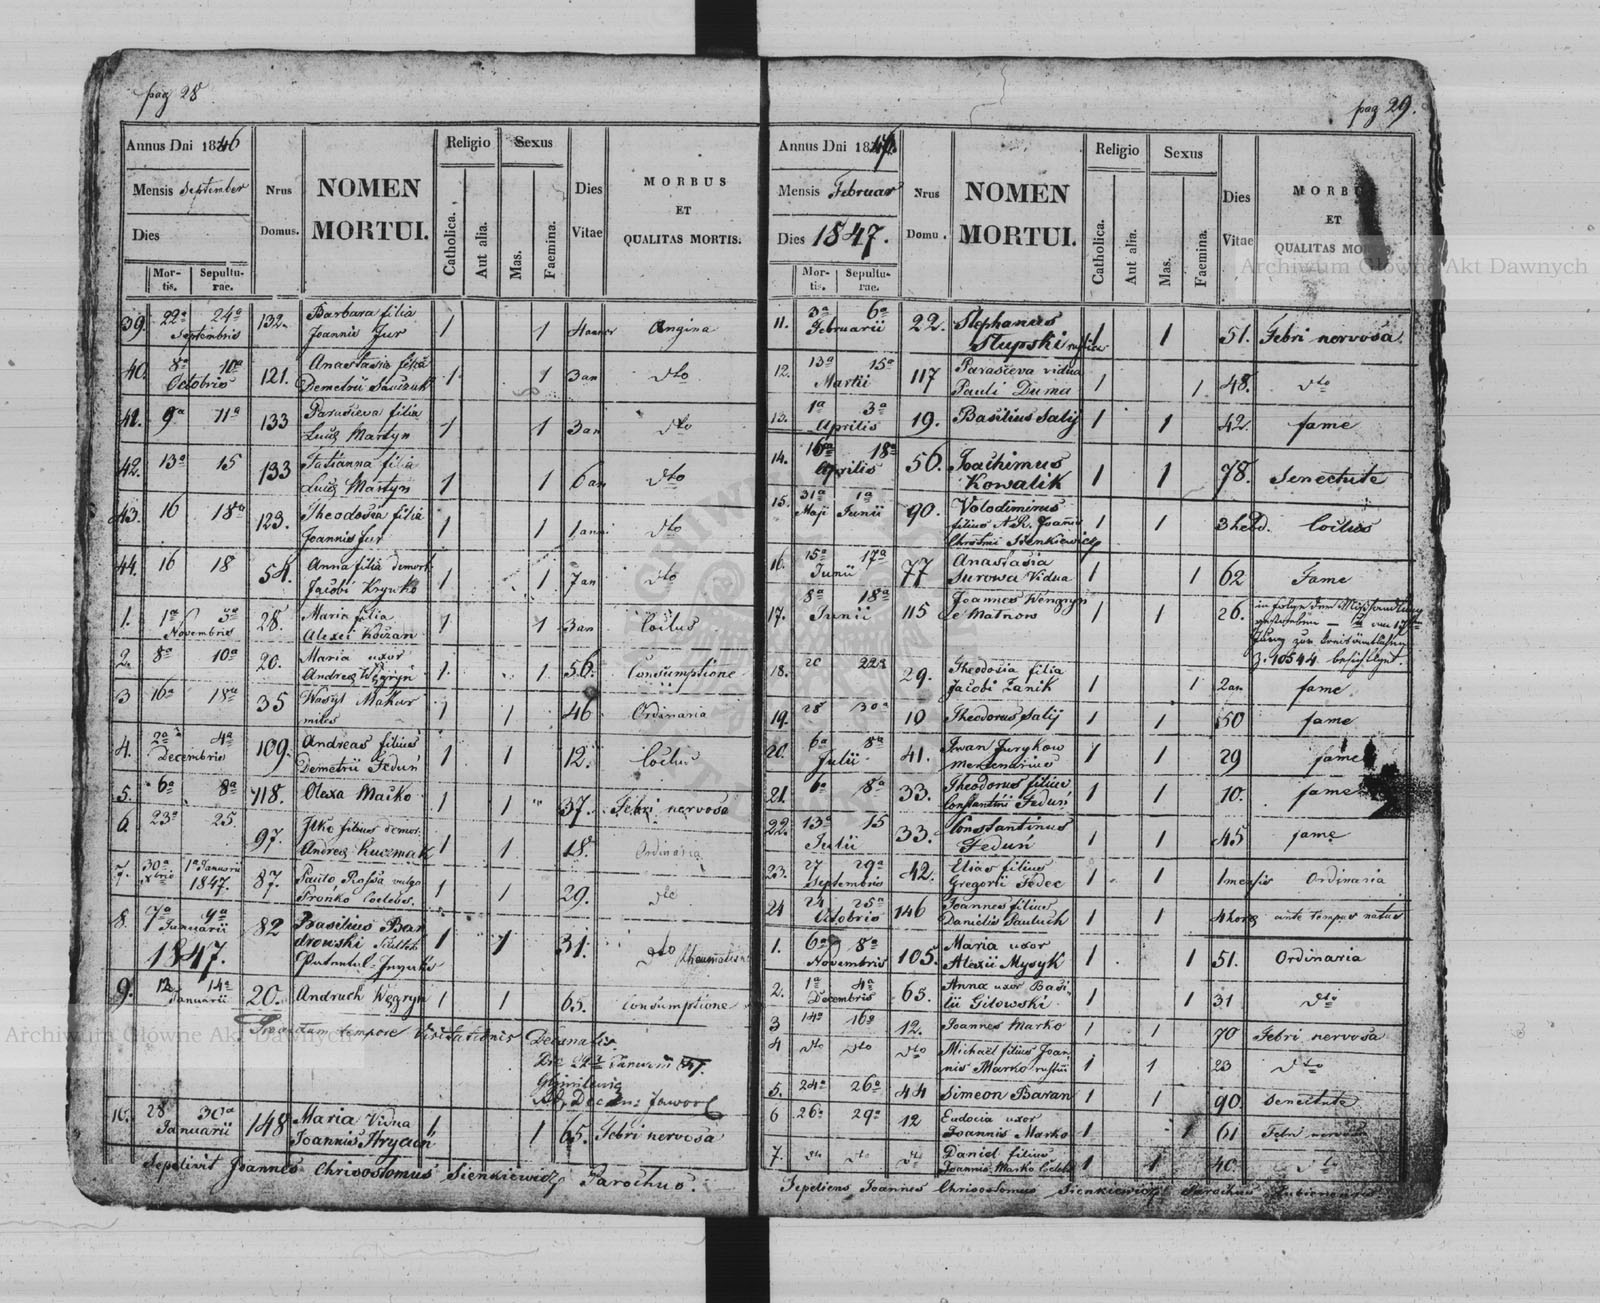 pag 28
Annus Dni 1846
Mensis September
Dies
Mortis. Sepulturae.
Nrus Domus.
NOMEN MORTUI.
Religio
Catholica. Aut alia.
Sexus
Mas. Faemina.
Dies Vitae
MORBUS ET QUALITAS MORTIS.
39. 22a 24a Septembris 132. Barbara filia
Joannis Jur 1 1 Angina
40. 8a 10a Octobris 121. Anastasia filia
Demetrii 1 1 3 an dto
41. 9a 11a 133 Parasieva filia
Lucę Martyn 1 1 3 an dto
42. 13a 15 133 Tatianna filia
Lucę Martyn 1 1 6 an dto
43. 16 18a 123. Theodosia filia
Joannis Jur 1 1 1 anni dto
44. 16 18 54. Anna filia demort.
Jacobi Krynko 1 1 7 an dto
1. 1a 3a Novembris 28. Maria filia
Alexii 1 1 3 an Coitus
2. 8a 10a 20. Maria uxor
Andreę Węgryn 1 1 56. Consumptione
3 16a 18a 35 Wasyl Makar
miles 1 1 46 Ordinaria
4. 2a 4a Decembris 109. Andreas filius
Demetrii Feduń 1 1 12. Coitus
5. 6a 8a 118. Olexa Maćko 1 1 37. Febri nervosa
6. 23a 25. 97. Ilko filius demor.
Andreę Kuczmak 1 1 18. Ordinaria
7. 30a Xbris 1a Januarii 1847. 87. Pawło
Prońko Coelebs. 1 1 29. dto
8. 7a 9a Januarii 1847. 82 Basilius Ban
drowski 1 1 31. dto
9. 12 14a Januarii 20. Andruch Węgryn 1 1 65. Consumptione
tempore Visitationis Decanalis
Januarii 847.
10. 28 30a Januarii 148 Maria Vidua
Joannis Hrycan 1 1 65. Febri nervosa
Sepelivit Joannes Chrisostomus Sienkiewicz Parochus.
pag 29.
Annus Dni 1847.
Mensis Februar
Dies 1847.
Mortis. Sepulturae.
Nrus Domu.
NOMEN MORTUI.
Religio
Catholica. Aut alia.
Sexus
Mas. Faemina.
Dies Vitae
MORBUS ET QUALITAS MORTIS.
11. 3a 6a Februarii 22. Stephanus
Słupski 1 1 51. Febri nervosa.
12. 13a 15a Martii 117 Parasieva vidua
Pauli Duma 1 1 48. dto
13. 1a 3a Aprilis 19. Basilius Salij 1 1 42. fame
14. 16a 18a Aprilis 56. Joachimus
Kowalik 1 1 78. Senectute
15. 31a Maji 1a Junii 90. Volodimirus
filius A.R. Joannis
Christmi Sienkiewicz 1 1 Coitus
16. 15a 17a Junii 77 Anastasia
Surowa Vidua 1 1 62 Fame
17. 8a 18a Junii 115 Joannes Węngryn
de Matnow 1 1 26. in folge der Mißhandlung
gestorben
zur Kreisämtlichen
Z. 10544
18. 20 22a 29. Theodosia filia
Jacobi Zanik 1 1 2 an fame.
19. 28 30a 10 Theodorus Salij 1 1 50 fame
20. 6a 8a Julii 41. Iwan Jurykow
mercenarius 1 1 29 fame
21. 6a 8a 33. Theodorus filius
Constantini Feduń 1 1 10. fame
22. 13a 15 Julii 33. Constantinus
Feduń 1 1 45 fame
23. 27 29a Septembris 42. Elias filius
Gregorii Fedec 1 1 1 mensis Ordinaria
24 24 25a Octobris 146 Joannes filius
Danielis Pauluch 1 1 4 horę ante tempus natus
1. 6a 8a Novembris 105. Maria uxor
Alexii Mysyk 1 1 51. Ordinaria
2. 1a 4a Decembris 65. Anna uxor Basi-
lii Gilowski 1 1 31 dto
3 14a 16a 12. Joannes Marko 1 1 70 Febri nervosa
4 dto dto dto Michael filius Joan-
nis Marko 1 1 23 dto
5. 24a 26a 44 Simeon Baran 1 1 90 Senectute
6 26a 29a 12 Eudocia uxor
Joannis Marko 1 1 61 Febri nervosa
7. dto dto dto Daniel filius
Joannis Marko Coelebs 1 1 40. dto
Sepeliens Joannes Chrisostomus Sienkiewicz Parochus
Archiwum Główne Akt Dawnych
Archiwum Główne Akt Dawnych